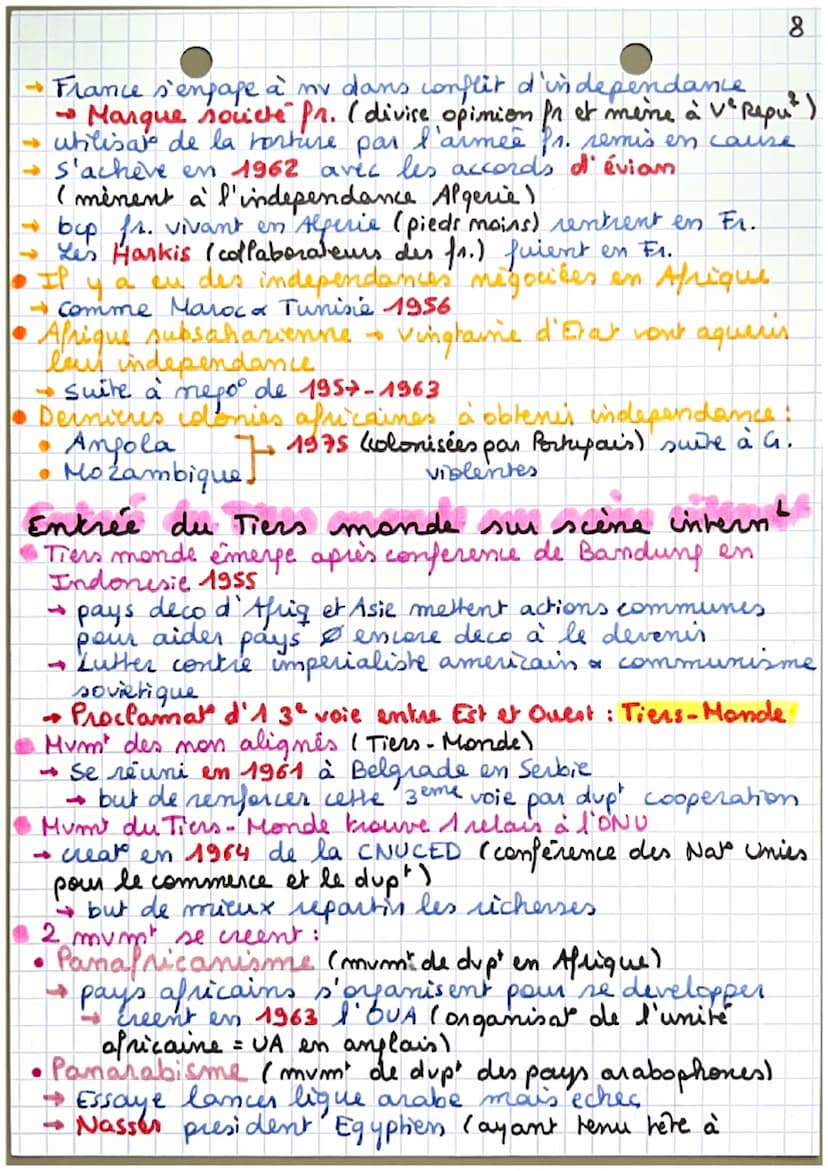 8
→ France s'engage à nv dans conflit d'independance
→ Marque societé fr. (divise opinion fr et mène à Ve Repu²)
→ utilisat° de la torture par l'armée fr. remis en cause
→ s'achève en 1962 avec les accords d'évian
(mènent à l'independance Algerie)
→ bcp fr. vivant en Algerie (pieds noirs) rentrent en Fr.
→ Les Harkis (collaborateurs des fr.) fuient en Fr.
• Il y a eu des independances négociées en Afrique
→ comme Maroc & Tunisie 1956
• Afrique subsaharienne → vingtaine d'Etat vont aquerir
leur independance
→ suite à nego° de 1957-1963
• Dernieres colonies africaines à obtenir independance :
• Angola
• Mozambique → 1975 (colonisées par Portugais) suite à G.
violentes
Entrée du Tiers monde sur scène internL
• Tiers monde émerge après conference de Bandung en
Indonesie 1955
→ pays deco d'Afriq et Asie mettent actions communes
pour aider pays Ø encore deco à le devenir
→ Lutter contre imperialiste americain & communisme
sovietique
→ Proclamat° d'1 3e voie entre Est et Ouest : Tiers-Monde
• Mvmt des non alignés (Tiers-Monde)
→ Se réuni en 1961 à Belgrade en Serbie
→ but de renforcer cette 3eme voie par dvpt cooperation
• Mvmt du Tiers-Monde trouve 1 relais à l'ONU
→ creat° en 1964 de la CNUCED (conférence des Nat° Unies
pour le commerce et le dvpt)
→ but de mieux repartir les richesses
• 2 mvmt se creent :
• Panafricanisme (mvmt de dvpt en Afrique)
→ pays africains s'organisent pour se developper
→ creent en 1963 l'OUA (organisat° de l'unité
africaine = UA en anglais)
• Panarabisme (mvmt de dvpt des pays arabophones)
→ Essaye lancer ligue arabe mais echec
→ Nasser president Egyptien (ayant tenu tête à